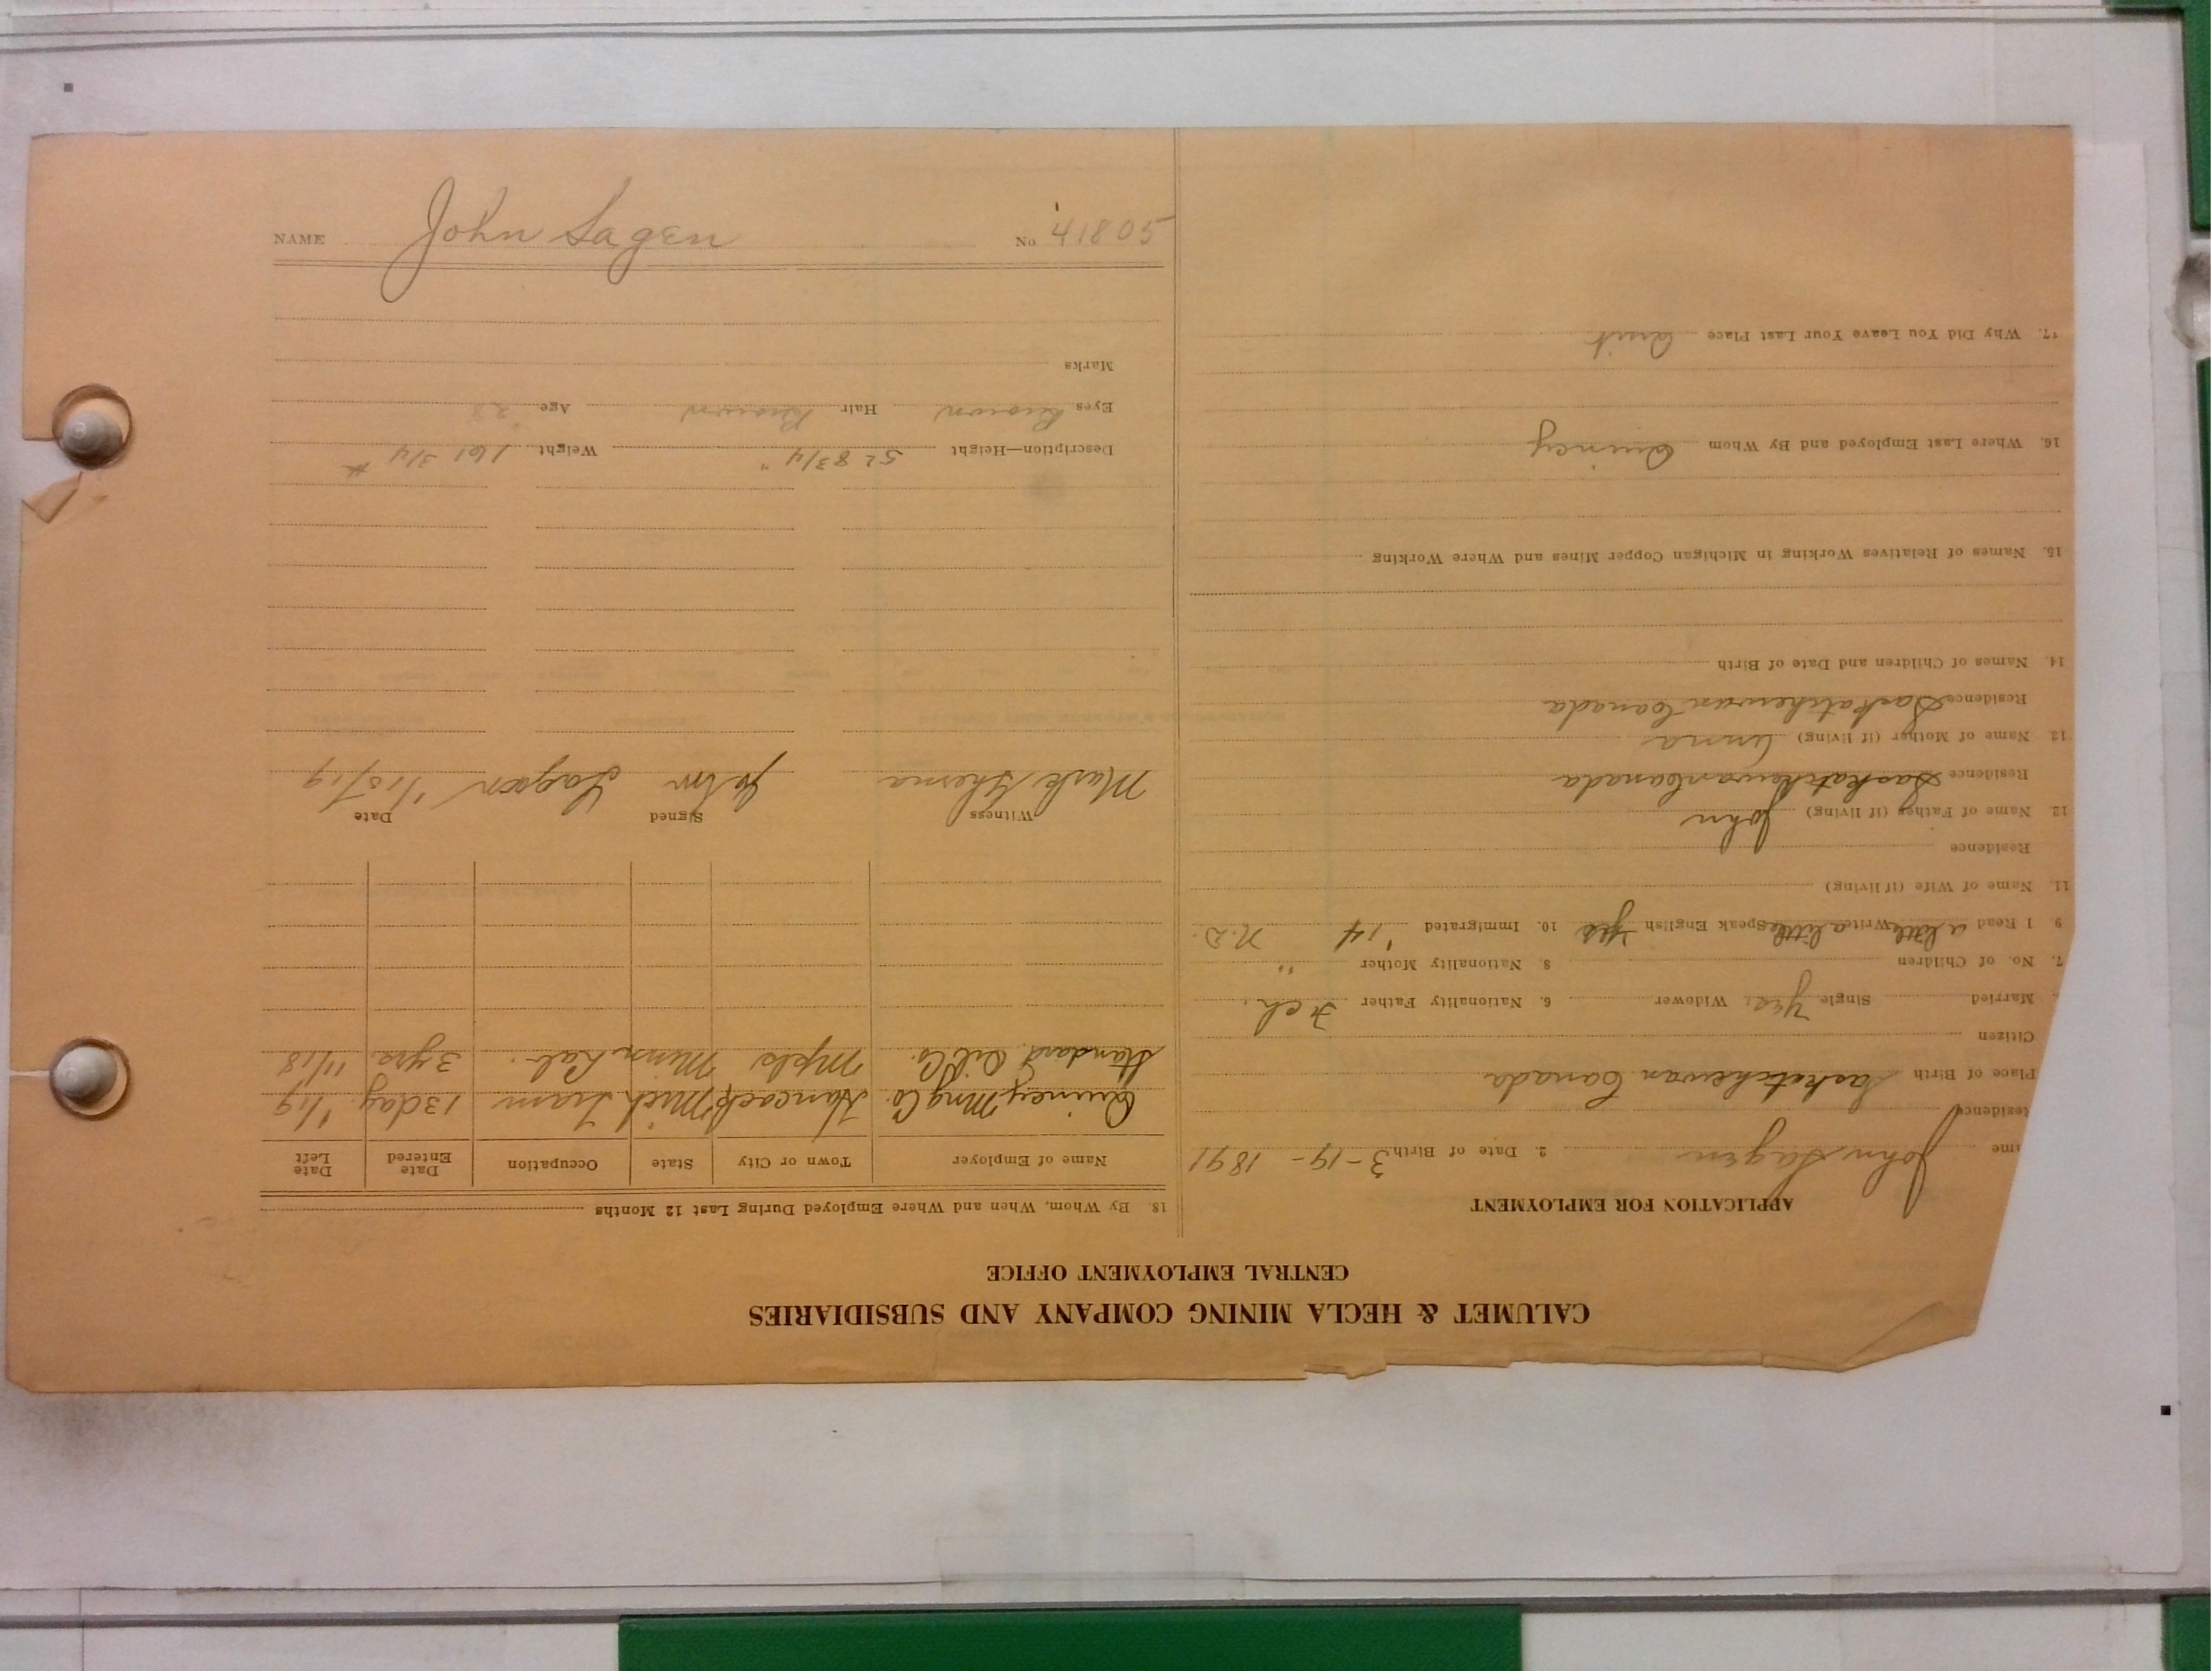 CALUMET & HECLA MINING COMPANY AND SUBSIDIARIES
CENTRAL EMPLOYMENT OFFICE
APPLICATION FOR EMPLOYMENT
ame John Sagen 2. Date of Birth 3-19-1891
Residence
Place of Birth Saskatchewan Canada
Citizen
Married Single Yes. Widower 6. Nationality Father Fch.
7. No. of Children 8. Nationality Mother "
9. I Read a little Write a little Speak English Yes 10. Immigrated '14 N.D.
11. Name of Wife (if living)
Residence
12. Name of Father (if living) John
Residence Saskatchewan Canada
13. Name of Mother (if living) Anna
Residence Saskatchewan Canada
14. Names of Children and Date of Birth
15. Names of Relatives Working in Michigan Copper Mines and Where Working
16. Where Last Employed and By Whom Quincy
17. Why Did You Leave Your Last Place Quit
18. By Whom, When and Where Employed During Last 12 Months
Name of Employer Town or City State Occupation Date Entered Date Left
Quincy Mng Co. Hancock Mich Tram 13 day. 1/19
Standard Oil Co. Mpls Minn Lab. 3 yrs. 11/18
Witness Signed Date
Mark John 1/15/19
Description—Height 5' 8 3/4" Weight 161 3/4 #
Eyes Brown Hair Brown Age 28
Marks
NAME John Sagen No 41805